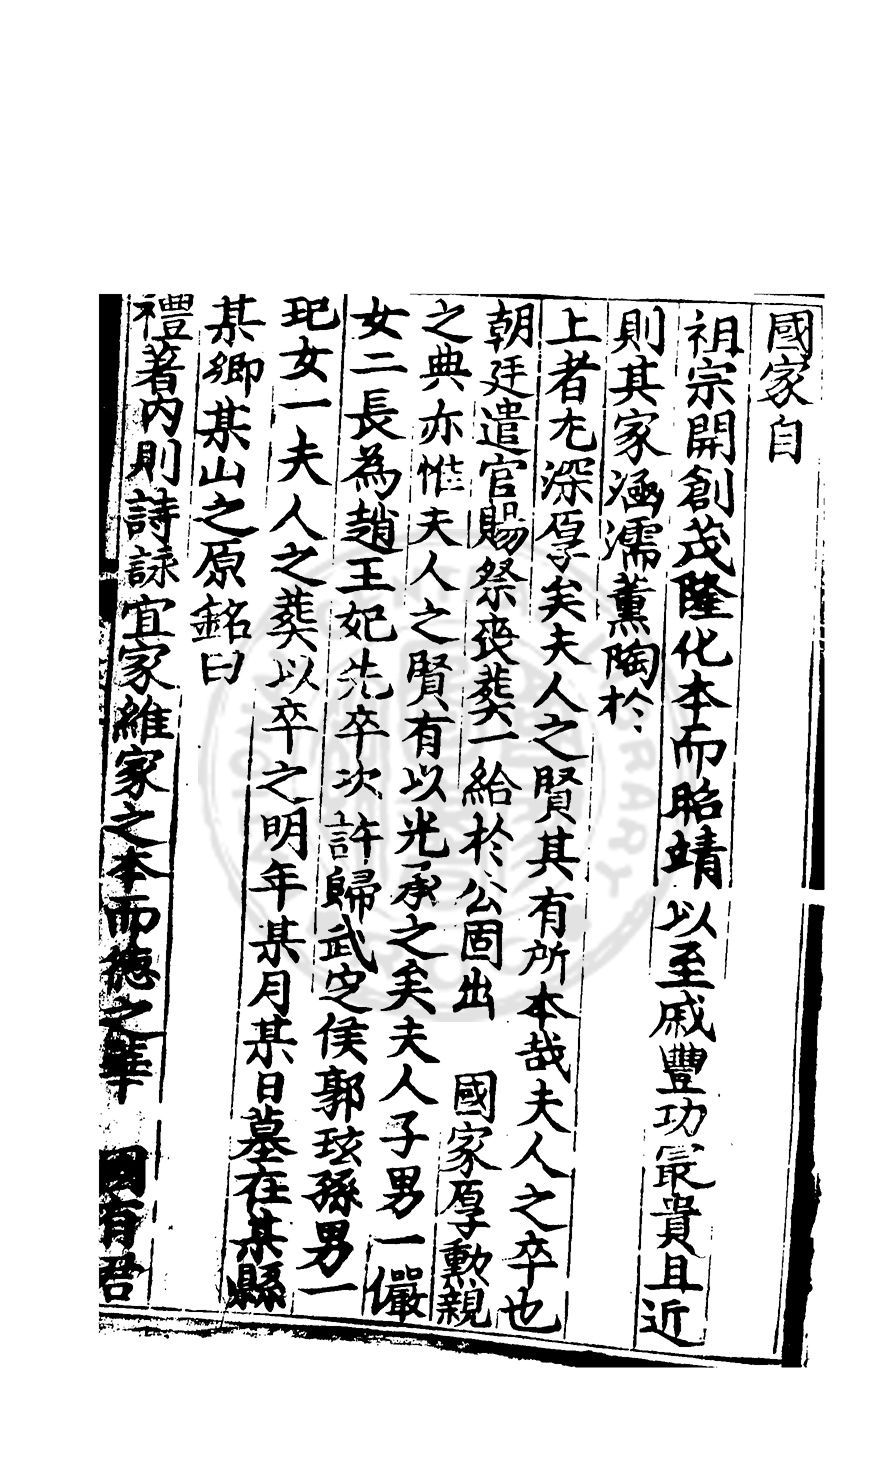 國家自
祖宗開創茂隆化本而昭靖以至戚豐功最貴且近
則其家涵濡薰陶於
上者尤深厚矣夫人之賢其有所本哉夫人之卒也
朝廷遣官賜祭喪葬一給於公固出 國家厚勳親
之典亦惟夫人之賢有以光承之矣夫人子男一儼
女二長為趙王妃先卒次許歸武定侯郭玹孫男一
玘女一夫人之葬以卒之明年某月某日墓在某縣
某鄉某山之原銘曰
禮著內則詩詠宜家維家之本而德之華 國有君